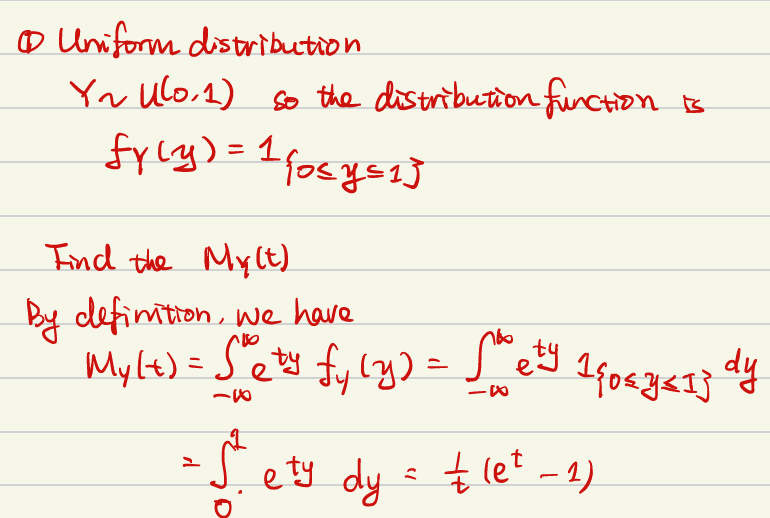 ① Uniform distribution
Y~U(0,1) so the distribution function is
f_Y(y) = 1_{0≤y≤1}
Find the M_Y(t)
By definition, we have
M_y(t) = ∫_{-∞}^{∞} e^{ty} f_y(y) = ∫_{-∞}^{∞} e^{ty} 1_{0≤y≤1} dy
= ∫_0^1 e^{ty} dy = 1/t (e^t - 1)